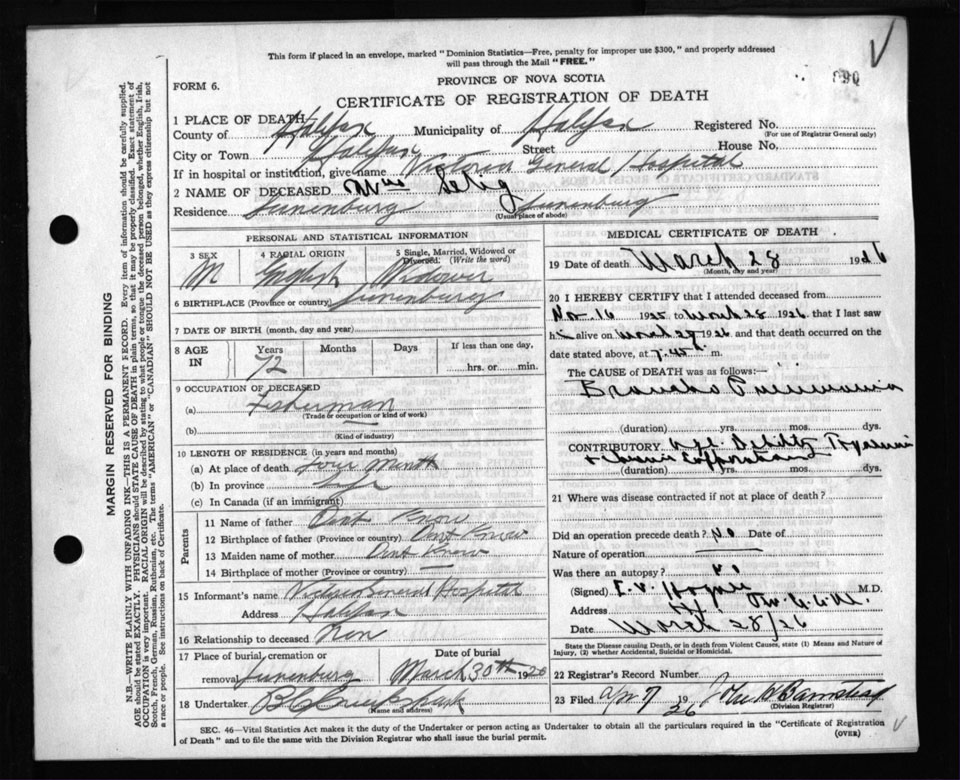 This form if placed in an envelope, marked "Dominion Statistics—Free, penalty for improper use $300," and properly addressed
will pass through the Mail "FREE."
PROVINCE OF NOVA SCOTIA
FORM 6.
CERTIFICATE OF REGISTRATION OF DEATH
1 PLACE OF DEATH
County of Halifax Municipality of Halifax Registered No.
(For use of Registrar General only)
City or Town Halifax Street House No.
If in hospital or institution, give name Victoria General Hospital
2 NAME OF DECEASED Selig
Residence Lunenburg Lunenburg
(Usual place of abode)
PERSONAL AND STATISTICAL INFORMATION
3 SEX M
4 RACIAL ORIGIN English
5 Single, Married, Widowed or
Divorced. (Write the word)
Widower
6 BIRTHPLACE (Province or country) Lunenburg
7 DATE OF BIRTH (month, day and year)
8 AGE IN Years 72 Months Days If less than one day, hrs. or min.
9 OCCUPATION OF DECEASED
(a) Fisherman
(Trade or occupation or kind of work)
(b)
(Kind of industry)
10 LENGTH OF RESIDENCE (in years and months)
(a) At place of death four Month
(b) In province Life
(c) In Canada (if an immigrant)
Parents
11 Name of father Dont Know
12 Birthplace of father (Province or country) Dont Know
13 Maiden name of mother Dont Know
14 Birthplace of mother (Province or country) —
15 Informant's name Victoria General Hospital
Address Halifax
16 Relationship to deceased Non
17 Place of burial, cremation or
removal Lunenburg
Date of burial
March 30th 1926
18 Undertaker
(Name and address)
MEDICAL CERTIFICATE OF DEATH
19 Date of death March 28 1926
(Month, day and year)
20 I HEREBY CERTIFY that I attended deceased from
Nov. 16 1925 to March 28 1926, that I last saw
him alive on March 27 1926 and that death occurred on
the date stated above, at 7.45 m.
The CAUSE OF DEATH was as follows:—
Broncho Pneumonia
(duration) yrs. mos. dys.
CONTRIBUTORY Debility
(duration) yrs. mos. dys.
21 Where was disease contracted if not at place of death?
Did an operation precede death? No Date of
Nature of operation
Was there an autopsy? No
(Signed) M.D.
Address
Date March 28/26
State the Disease causing Death, or in death from Violent Causes, state (1) Means and Nature of
Injury, (2) whether Accidental, Suicidal or Homicidal.
22 Registrar's Record Number
23 Filed Apr 7 1926 John B Barnstead
(Division Registrar)
SEC. 46—Vital Statistics Act makes it the duty of the Undertaker or person acting as Undertaker to obtain all the particulars required in the "Certificate of Registration
of Death" and to file the same with the Division Registrar who shall issue the burial permit.
(OVER)
MARGIN RESERVED FOR BINDING
N.B.—WRITE PLAINLY WITH UNFADING INK—THIS IS A PERMANENT RECORD. Every item of information should be carefully supplied.
AGE should be stated EXACTLY. PHYSICIANS should STATE CAUSE OF DEATH in plain terms, so that it may be properly classified. Exact statement of
OCCUPATION is very important. RACIAL ORIGIN will be described by stating to what people or tongue the deceased person belonged, whether English, Irish,
Scotch, French, German, Russian, Ruthenian, etc. The terms "AMERICAN" or "CANADIAN" SHOULD NOT BE USED as they express citizenship but not
a race or people. See instructions on back of Certificate.